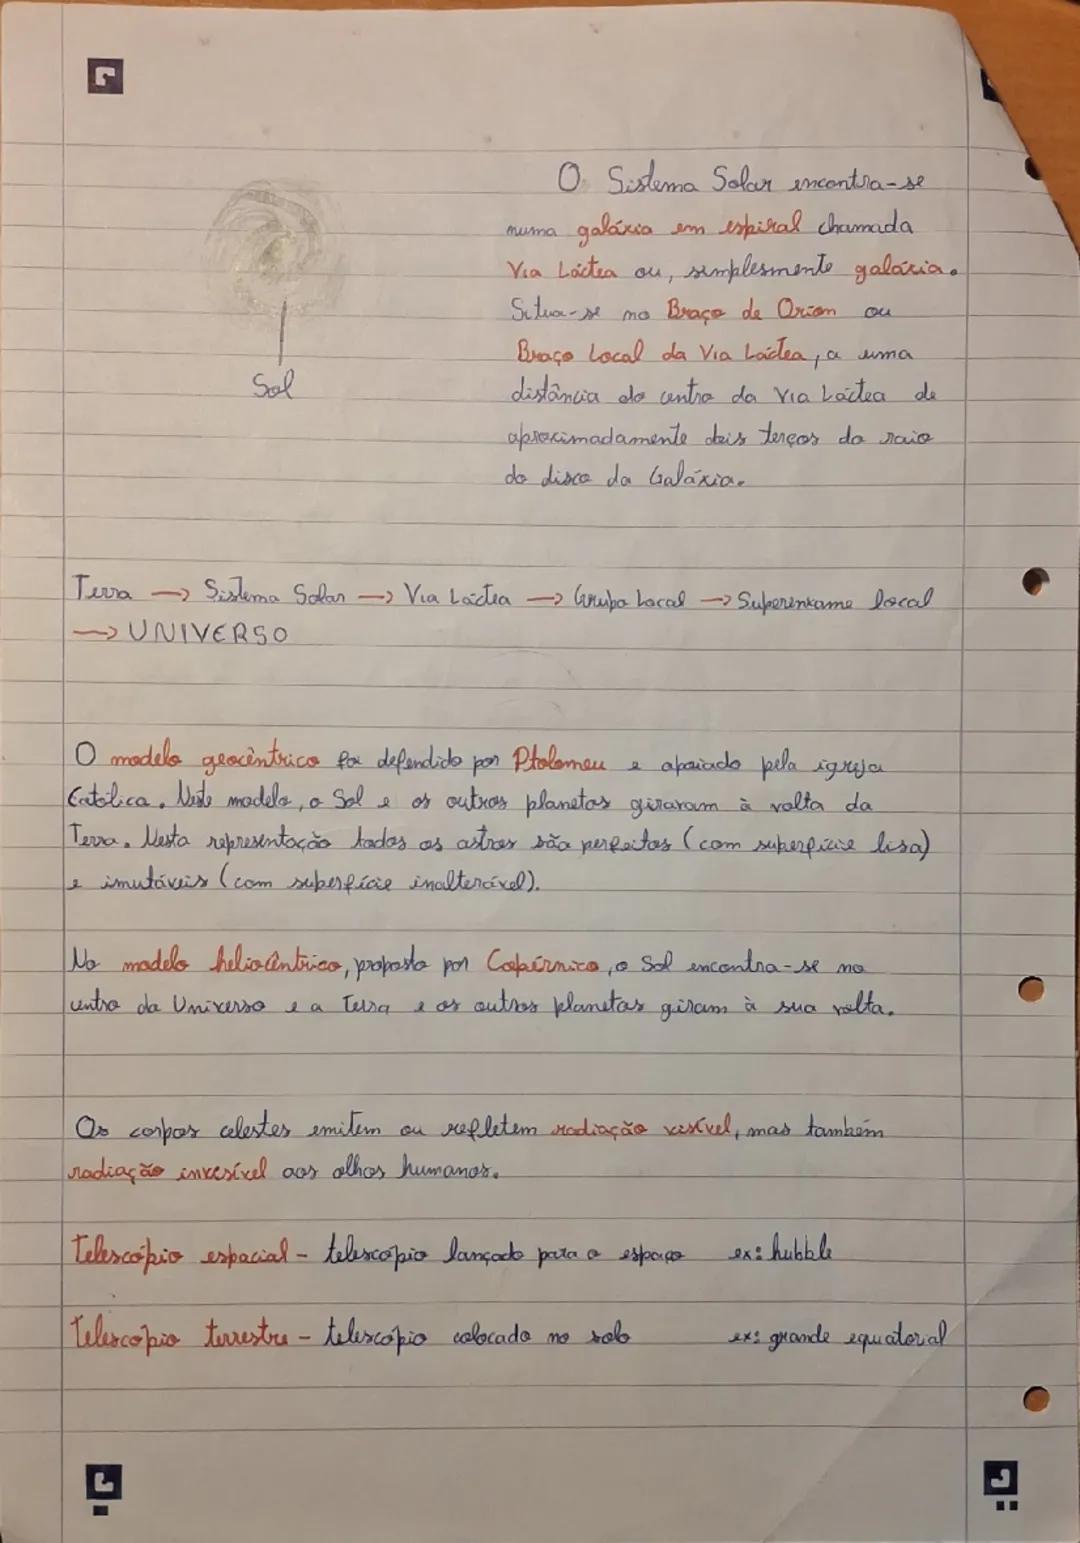 O Sistema Solar encontra-se
numa galáxia em espiral chamada
Via Láctea ou, simplesmente galáxia.
Situa-se no Braço de Orion ou
Braço Local da Via Láctea, a uma
distância do centro da Via Láctea de
aproximadamente dois terços do raio
do disco da Galáxia.
Sol
Terra → Sistema Solar → Via Láctea → Grupo Local → Superenxame local
→ UNIVERSO
O modelo geocêntrico foi defendido por Ptolomeu e apoiado pela igreja
Católica. Neste modelo, o Sol e os outros planetas giravam à volta da
Terra. Nesta representação todos os astros são perfeitos (com superfície lisa)
e imutáveis (com superfície inalterável).
No modelo heliocêntrico, proposto por Copérnico, o Sol encontra-se no
centro do Universo e a Terra e os outros planetas giram à sua volta.
Os corpos celestes emitem ou refletem radiação visível, mas também
radiação invisível aos olhos humanos.
Telescópio espacial - telescópio lançado para o espaço ex: hubble
Telescópio terrestre - telescópio colocado no solo ex: grande equatorial